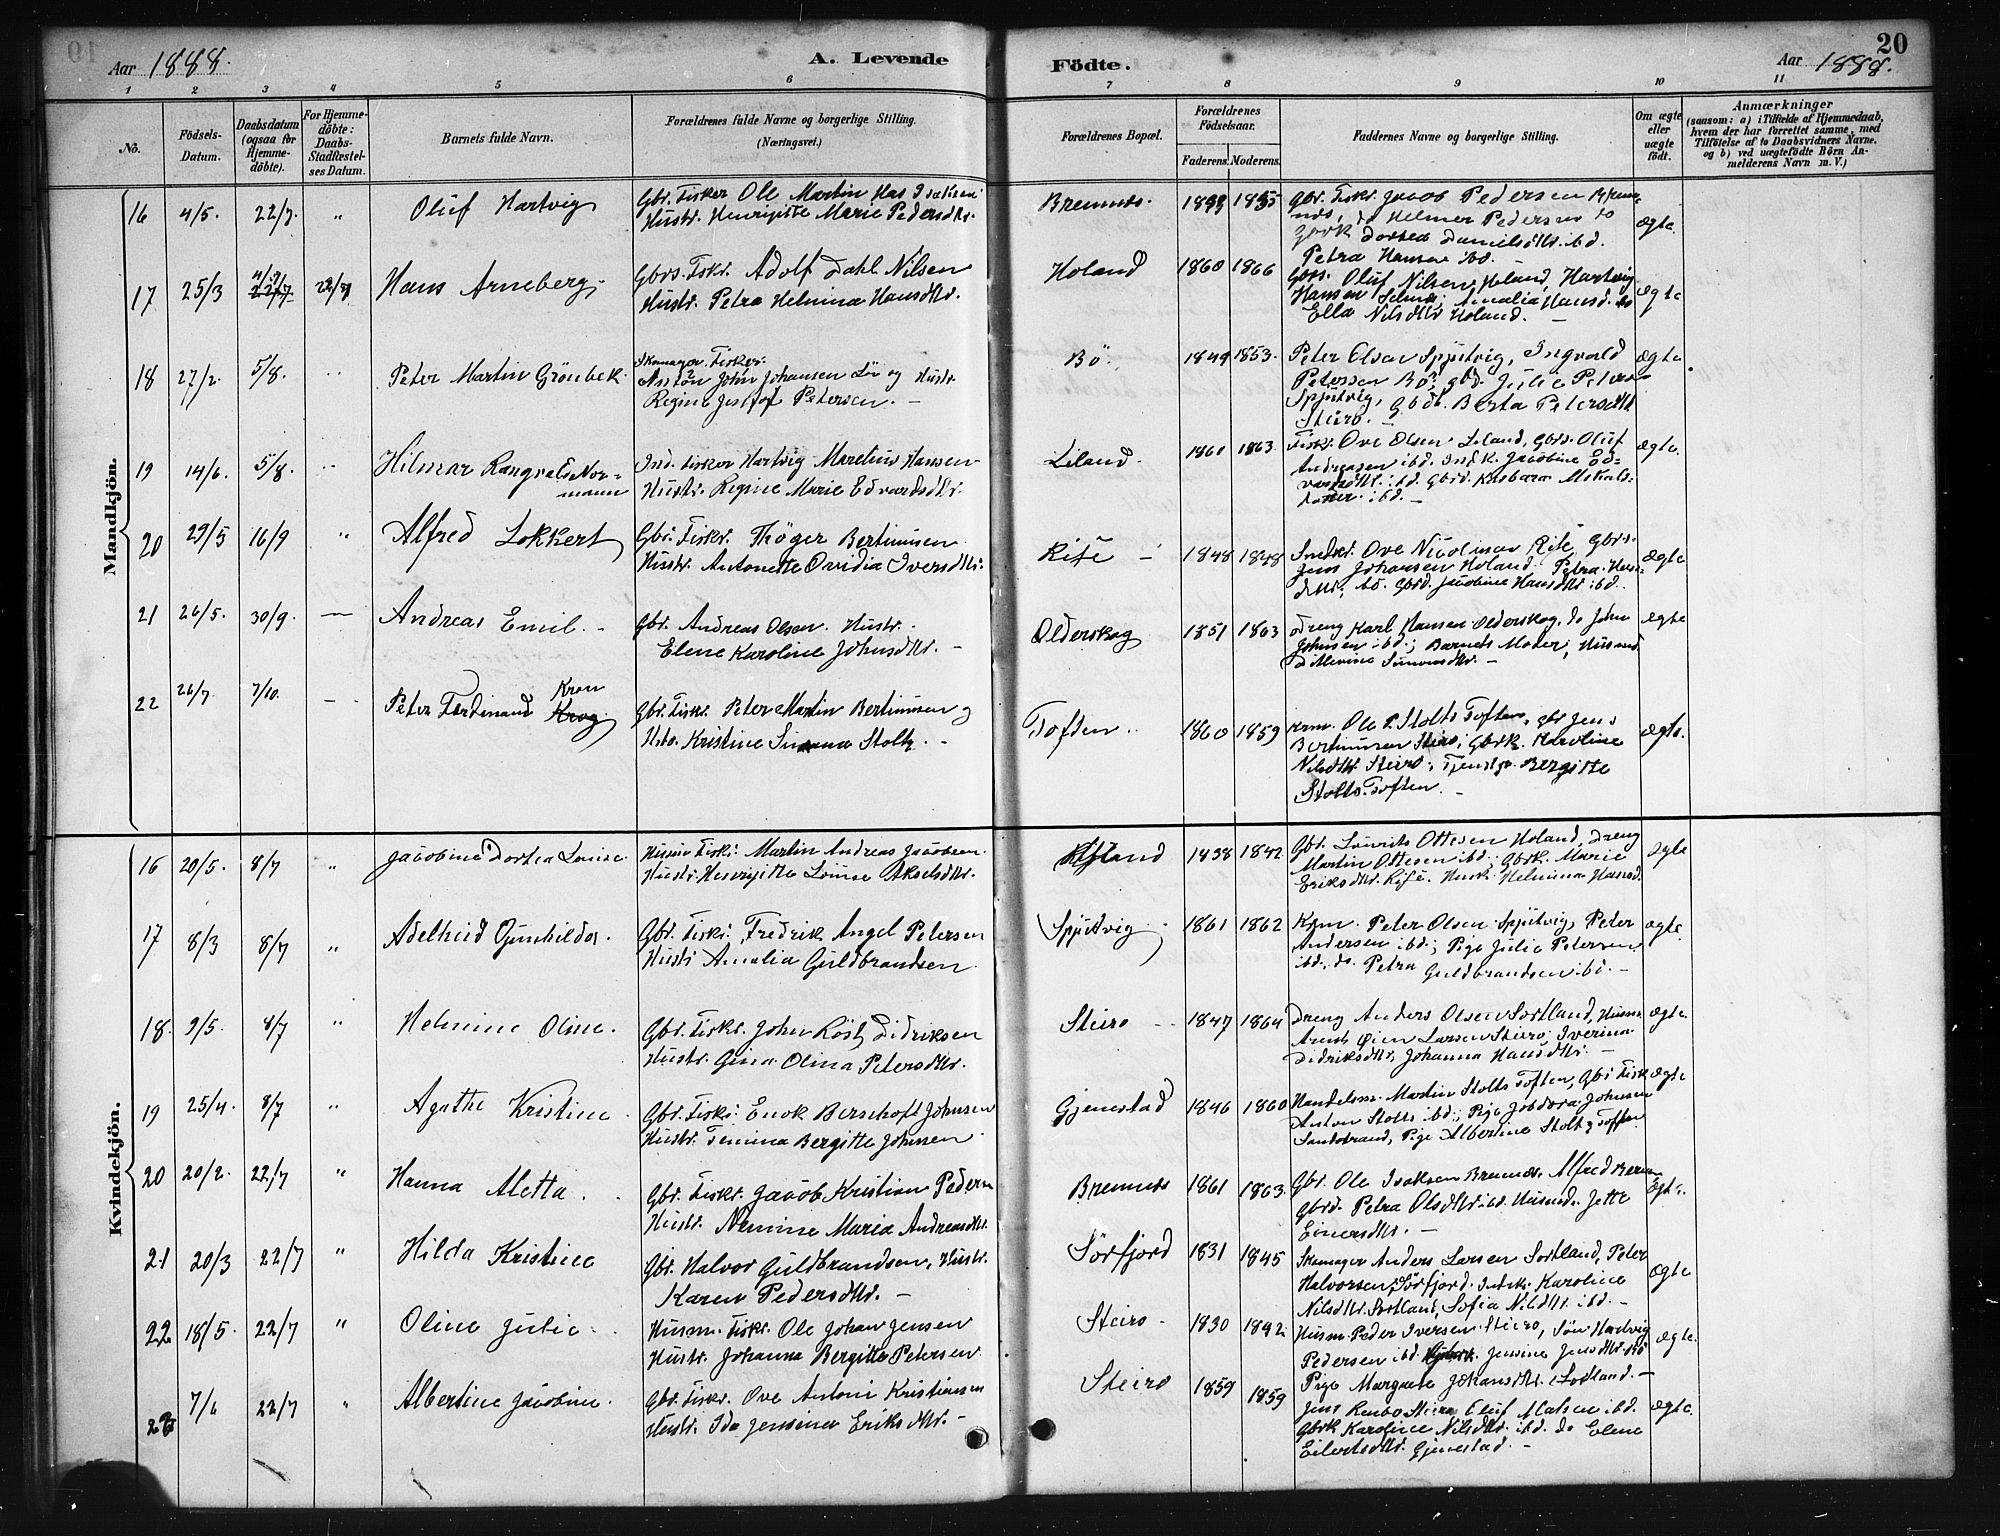 Aar 1888.
A. Levende
Födte.
Aar 1888.
20
1 2 3 4 5 6 7 8 9 10 11
No.
Födsels-
Datum.
Daabsdatum
(ogsaa for
Hjemme-
döbte).
For Hjemme-
döbte:
Daabs-
Stadfæstel-
ses Datum.
Barnets fulde Navn.
Forældrenes fulde Navne og borgerlige Stilling.
(Næringsvei.)
Forældrenes Bopæl.
Forældrenes
Födselsaar.
Faderens. Moderens.
Faddernes Navne og borgerlige Stilling.
Om ægte
eller
uægte
födt.
Anmærkninger
(saasom: a) i Tilfælde af Hjemmedaab,
hvem der har forrettet samme, med
Tilföielse af to Daabsvidners Navne,
og b) ved uægtefödte Börn An-
melderens Navn m. V.)
Mandkjön.
16 4/5. 22/7. " Oluf Hartvig
Gbr. Fisker Ole Martin Isaksen
Hustr. Henrijette Marie Pedersdtr.
Bremnes. 1855
Gbr. Fiskr. Jacob Pedersen Brem-
nes, do Helmer Pedersen do
Gbrk Dortea Danielsdtr. ibd.
Petra Hansen ibd. -
ægte.
17 25/3 22/7 Hans Arneberg
Gbrs. Fiskr. Adolf Dahl Nilsen
Hustr. Petra Helmina Hansdtr.
Holand 1860 1866
Gbrs. Oluf Nilsen Holand, Hartvig
Hansen Selnes, Amalia Hansd. do
Ella Nilsdtr Holand. -
ægte
18 27/2. 5/8. Peter Martin Grönbek
Skomager Fisker
John Johansen Lö og Hustr.
Regine Petersen. -
Bö. 1849 1853.
Peter Olsen Spjutvig, Ingvald
Petersen Bö, gbd. Julie Peters
Spjutvig, Gbdt. Berta Petersdtr
Steiro. -
ægte
19 14/6. 5/8. Hilmar Rangvald Nor-
mann
Ind. Fisker Hartvig Marelius Hansen
Hustr. Regine Marie Edvardsdtr.
Leland. 1861 1863.
Fiskr. Ove Olsen Leland, Gbrs. Oluf
Andreasen ibd. Indk. Jacobine Ed-
vardsdtr. ibd. Gbrd. Kasbara Mikals-
datter ibd. -
ægte.
20 29/5 16/9 " Alfred Lokkert
Gbr. Fiskr. Thöger Bertinusen
Hustr. Antonette Ovidia Iversdtr.
Rise - 1848 1848
Indkr. Ove Nicolisen Rise, Gbrs.
Jens Johansen Holand. Petra Hans-
dtr. bö. Gbrd. Jacobine Hansdtr ibd.
ægte
21 26/5. 30/9. - Andreas Emil. -
Gbr. Andreas Olsen. Hustr.
Elene Karoline Johnsdtr. -
Olderskog 1851 1863
Dreng Karl Hansen Olderskog, do John
Johnsen ibd; Barnets Moder, Husmd.
Ditlevine Simonsdtr. -
ægte
22 26/7. 7/10. - Peter Ferdinand Kron
Krog
Gbr. Fiskr. Peter Martin Bertinusen og
Hstr. Kristine Susanna Stoltz. -
Toften. 1860 1859
Krm. Ole P. Stolts Toften, Gbr Jens
Bertinusen Steiro; Gbrk. Karoline
Nilsdtr. Steiro; Tjenstpr. Bergitte
Stolts Toften. -
ægte.
Kvindekjön.
16 20/5. 8/7 " Jacobine Dortea Louise.
Husm Fisk: Martin Andreas Jacobsen.
Hustr. Henrijette Louise Akselsdtr.
1838 1842
Gbr. Lourits Ottesen Holand, Dreng
Martin Ottesen ibd; Gbrk. Marie
Eriksdtr. Rise. Husk. Helmina Hansd.
ægte
17 8/3 8/7 " Adelheid Gunhilda.
Gbr. Fiskr: Fredrik Angel Petersen
Hustr Amalia Guldbrandsen.
Spjutvig 1861 1862
Krm. Peter Olsen Spjutvig, Peter
Andersen ibd; Pige Julie Petersen
ibd. do. Petra Guldbrandsen ibd. -
ægte.
18. 9/5. 8/7 " Helmine Oline.
Gbr. Fiskr. John Röst Didriksen
Hustr. Gina Olina Petersdtr.
Steiro - 1847 1864
Dreng Anders Olsen Sortland, Husm.
Arent Öien Larsen Steiro; Iverina
Didriksdtr; Johanna Hansdtr. -
ægte.
19 25/4. 8/7 " Agathe Kristine
Gbr. Fiskr: Enok Berschoft Johnsen
Hustr. Femina Bergitte Johnsen.
Gjenestad 1846 1860
Handelsm. Martin Stolts Toften, Gbr Fisk
Anton Stolts ibd; Pige Johnsen
Sandstrand, Pige Albertine Stolts Toften
ægte
20 20/2. 22/7 " Hanna Aletta.
Gbr. Fiskr. Jacob Kristian Pedersen
Hustr. Maria Andreasdtr.
Bremnes 1861 1863.
Gbr. Ole Isaksen Bremnes. Alfred
Gbrd. Petra Olsdtr. ibd. Husmd. Jette
Einersdtr. -
ægte.
21 20/3 22/7 " Hilda Kristine
Gbr. Halvor Guldbrandsen, Hustr.
Karen Pedersdtr. -
Sörfjord 1831 1845
Skomager Anders Larsen Sortland, Peter
Halvorsen Sörfjord. Indsk. Karoline
Nilsdtr Sortland, Sofia Nilsdtr ibd. -
ægte
22 18/5. 22/7 " Oline Julie.
Husm. Fiskr. Ole Johan Jensen
Hustr. Johanna Bergitte Petersen.
Steiro - 1830 1842.
Husm. Peder Iversen Steiro, Sön Hartvig
Pedersen ibd. Jensine Jensdtr. Bö
Pige Margrete Johansdtr. Sortland. -
ægte.
23 7/6 22/7 " Albertine Jacobine.
Gbr. Fiskr. Ove Antoni Kristiansen
Hustr. Ida Jensina Eriksdtr. -
Steiro 1859 1859
Jens Steiro Oluf Matsen ibd.
Gbrk Karoline Nilsdtr. ibd. do Elene
Eilertsdtr. Gjenestad. -
ægte.